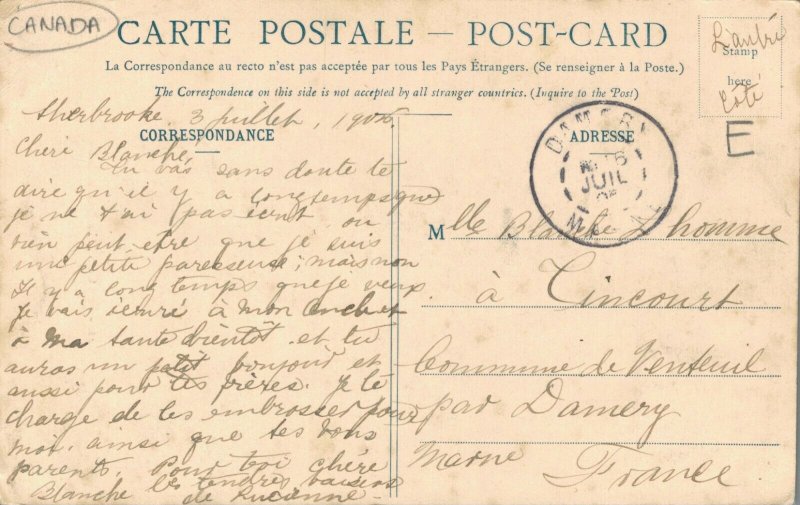 CANADA
CARTE POSTALE — POST-CARD
La Correspondance au recto n'est pas acceptée par tous les Pays Étrangers. (Se renseigner à la Poste.)
The Correspondence on this side is not accepted by all stranger countries. (Inquire to the Post)
Stamp
here
L'autre
côté
E
Sherbrooke, 3 Juillet, 190
CORRESPONDANCE
Chère Blanche,
Tu vas sans doute te
dire qu'il y a longtemps que
je ne t'ai pas écrit ou
bien peut-être que je suis
une petite paresseuse; mais non
Il y a longtemps que je veux.
Je vais écrire à mon oncle et
à ma tante bientôt et tu
auras un petit bonjour et
aussi pour tes frères. Je te
charge de les embrasser pour
moi ainsi que tes bons
parents. Pour toi chère
Blanche les tendres baisers
de Lucienne
ADRESSE
DAMERY
JUIL
MARNE
Mlle Blanche Lhomme
à Tincourt
Commune de Venteuil
par Damery
Marne
France